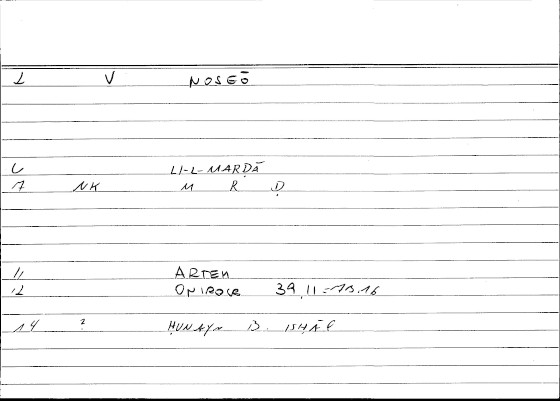 2 V NOSEŌ
6 LI-L-MARḌĀ
7 NK M R Ḍ
11 ARTEM
12 ONIROCR 39,11 = 13.16
14 2 ḤUNAYN B. ISḤĀQ